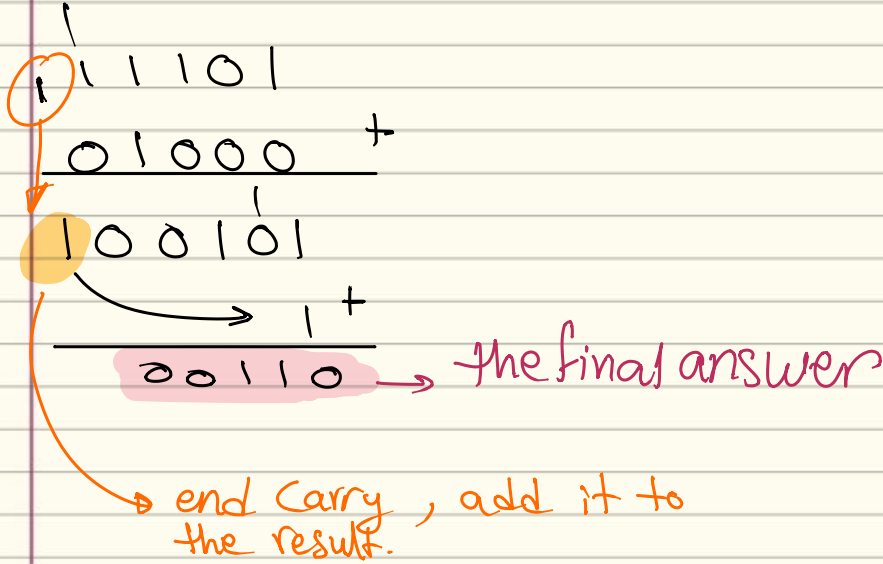 1
1 1 1 1 0 1
+
0 1 0 0 0
1
1 0 0 1 0 1
1 +
0 0 1 1 0 → the final answer
end carry, add it to
the result.